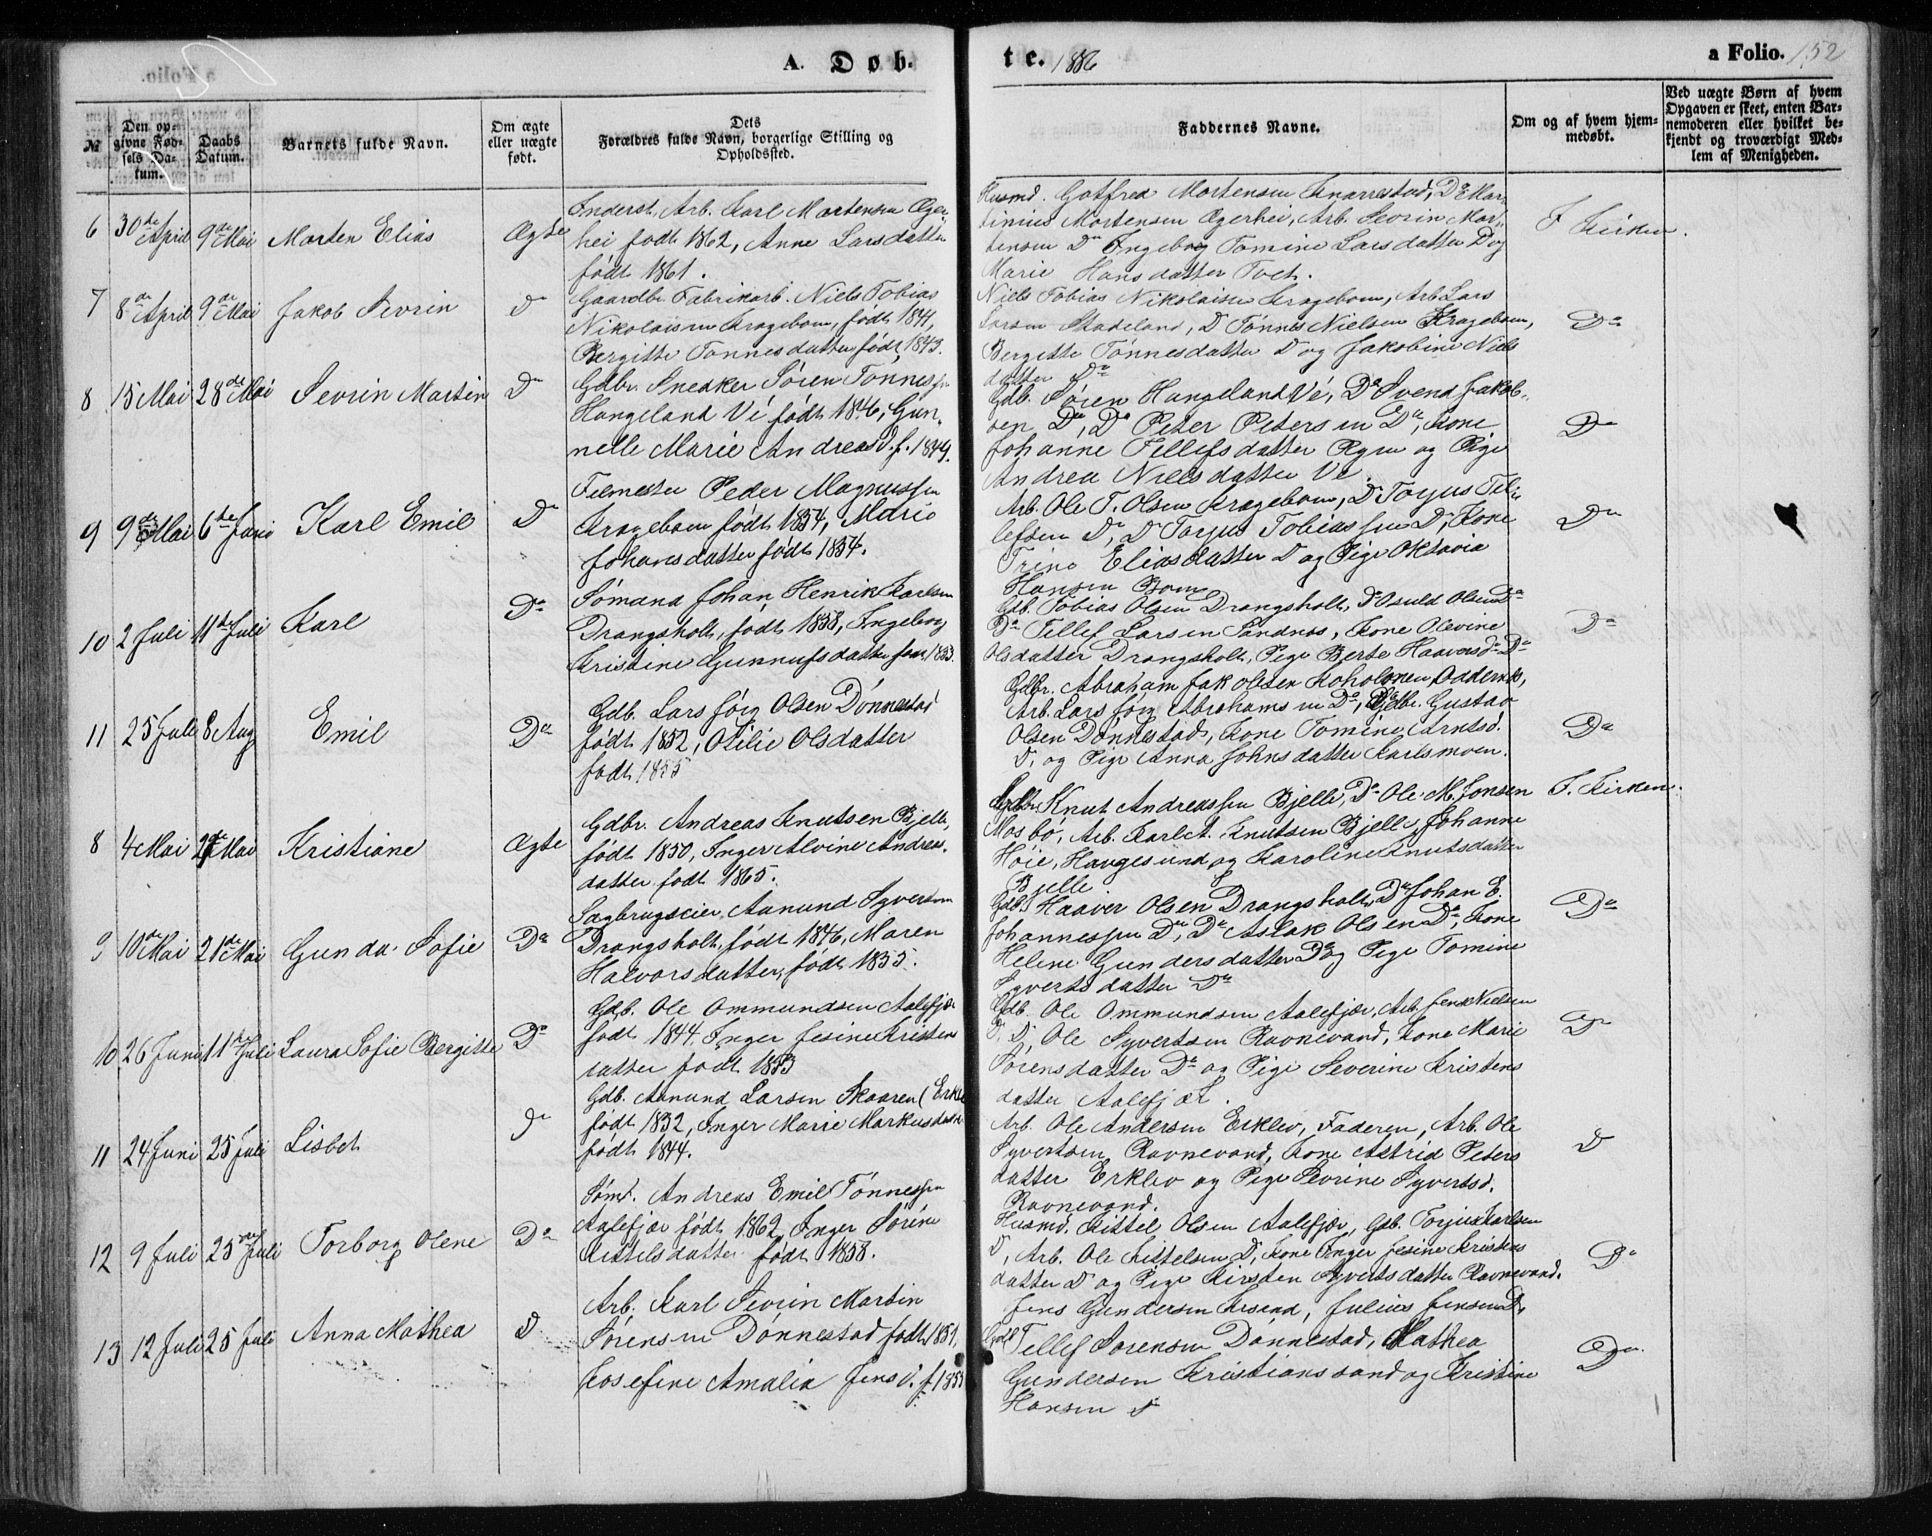 a Folio.
A. Døb-
te. 1886
a Folio. 152
№
Den op-
givne Fød-
sels Da-
tum.
Daabs
Datum.
Barnets fulde Navn.
Om ægte
eller uægte
født.
Dets
Forældres fulde Navn, borgerlige Stilling og
Opholdssted.
Faddernes Navne.
Om og af hvem hjem-
medøbt.
Ved uægte Børn af hvem
Opgaven er skeet, enten Bar-
nemoderen eller hvilket be-
kjendt og troværdigt Med-
lem af Menigheden.
6 30de April 9de Mai Morten Elias Ægte
Inderst, Arb. Karl Mortensen Æger-
hei født 1862, Anne Larsdatter
født 1861.
Husmd. Gotfred Mortensen Knarrestad, Do Mar-
tinius Mortensen Ægerhei, Arb. Sevrin Mor-
tensen Do Ingeborg Tomine Larsdatter D og
Marie Hansdatter Tvet.
I Kirken.
7 8de April 9de Mai Jakob Sevrin D
Gaardbr. Fabrikarb. Niels Tobias
Nikolaisen Kragebom, født 1841,
Bergitte Tønnesdatter født 1843.
Niels Tobias Nikolaisen Kragebom, Arb. Lars
Larsen Stadeland, D Tønnes Nielsen Kragebom,
Bergitte Tønnesdatter D og Jakobine Niels
datter Do
Do
8 15 Mai 28de Mai Sevrin Martin Do
Gdbr. Snedker Søren Tønnessen
Hangeland Vé født 1846, Gun-
nelle Marie Andreasd. f. 1849.
Gdb. Søren Hangeland Vé, Do Svend Jakob-
sen Do, Do Peter Petersen Do, Kone
Johanne Tellefsdatter Rgen og Pige
Andrea Nielsdatter Ve.
Do
9 9de Mai 6de Juni Karl Emil Do
Felmester Peder Magnussen
Kragebom født 1854, Marie
Johansdatter født 1854.
Arb. Ole T. Olsen Kragebom, D Torjus Tel-
lefsen D, D Torjus Tobiassen D, Kone
Trine Eliasdatter D og Pige Oktavia
Hansen Bom
Do
10 2 Juli 11te Juli Karl Do
Sømand Johan Henrik Karlsen
Drangsholt, født 1858, Ingeborg
Kristine Gunnufsdatter født 1853.
Gdb. Tobias Olsen Drangsholt, Do Osuld Olsen Do
Do Tellef Larsen Sandnes, Kone Olevine
Olsdatter Drangsholt, Pige Berte Haaversd. Do
Do
11 25 Juli 8 Aug Emil Do
Gdb. Lars Jørg Olsen Dønnestad
født 1852, Otilie Olsdatter
født 1855
Gdbr. Abraham Jakobsen Koholmen Oddernes,
Arb. Lars Jørg Abrahamsen Do, Gdbr. Gustav
Olsen Dønnestad, Kone Tomine Arntsd.
D. og Pige Anna Johnsdatter Karlsmoen.
Do
8 4 Mai 2de Mai Kristiane Ægte
Gdbr. Andreas Knutsen Bjelle,
født 1850, Inger Alvine Andreas-
datter født 1865.
Gdbr. Knut Andreassen Bjelle, Do Ole M. Jonsen
Mosbø, Arb. Karl A. Knutsen Bjelle, Johanne
Høie, Haugesund og Karoline Knutsdatter
Bjelle
I. Kirken.
9 10de Mai 21de Mai Gunda Sofie Do
Sagbrugseier Aanund Syvertsen
Drangsholt, født 1846, Maren
Halvorsdatter, født 1855.
Gdb. Haaver Olsen Drangsholt, Do Johan E.
Johannessen Do, Do Aslak Olsen Do, Kone
Helene Gundersdatter D og Pige Tomine
Syvertsdatter Do
Do
10 26 Juni 11te Juli Laura Sofie Bergitte Do
Gdb. Ole Ommundsen Aalefjær
født 1844. Inger Jesine Kristens
datter født 1853
Gdb. Ole Ommundsen Aalefjær, Arb. Jens Nielsen
D, D, Ole Syvertsen Ravnevand, Kone Marie
Sørensdatter Do og Pige Severine Kristens
datter Aalefjær.
Do
11 24 Juni 25 Juli Lisbet D
Gdb. Aanund Larsen Skaaren (Erkle
født 1832, Inger Marie Markusdatter
født 1844.
Arb. Ole Andersen Erklev, Faderen, Arb. Ole
Syvertsen Ravnevand, Kone Astrid Peters
datter Erklev og Pige Sevrine Syvertsd.
Ravnevand.
D
12 9 Juli 25de Juli Torborg Olene Do
Sømd. Andreas Emil Tønnessen
Aalefjær født 1862, Inger Sørine
Kittelsdatter født 1858.
Husmd. Kittel Olsen Aalefjær, Gdb. Torjus Karlsen
D, Arb. Ole Kittelsen D, Kone Inger Jesine Kristens
datter D og Pige Kirsten Syvertsdatter Ravnevand.
Do
13 12 Juli 25 Juli Anna Mathea D
Arb. Karl Sevrin Martin
Sørensen Dønnestad født 1851,
Josefine Amalia Jensd. f. 1855
Jens Gundersen Krsand, Julius Jensen D,
Gdb Tellef Sørensen Dønnestad, Mathea
Gundersen Kristianssand og Kristine
Hansen D
Do